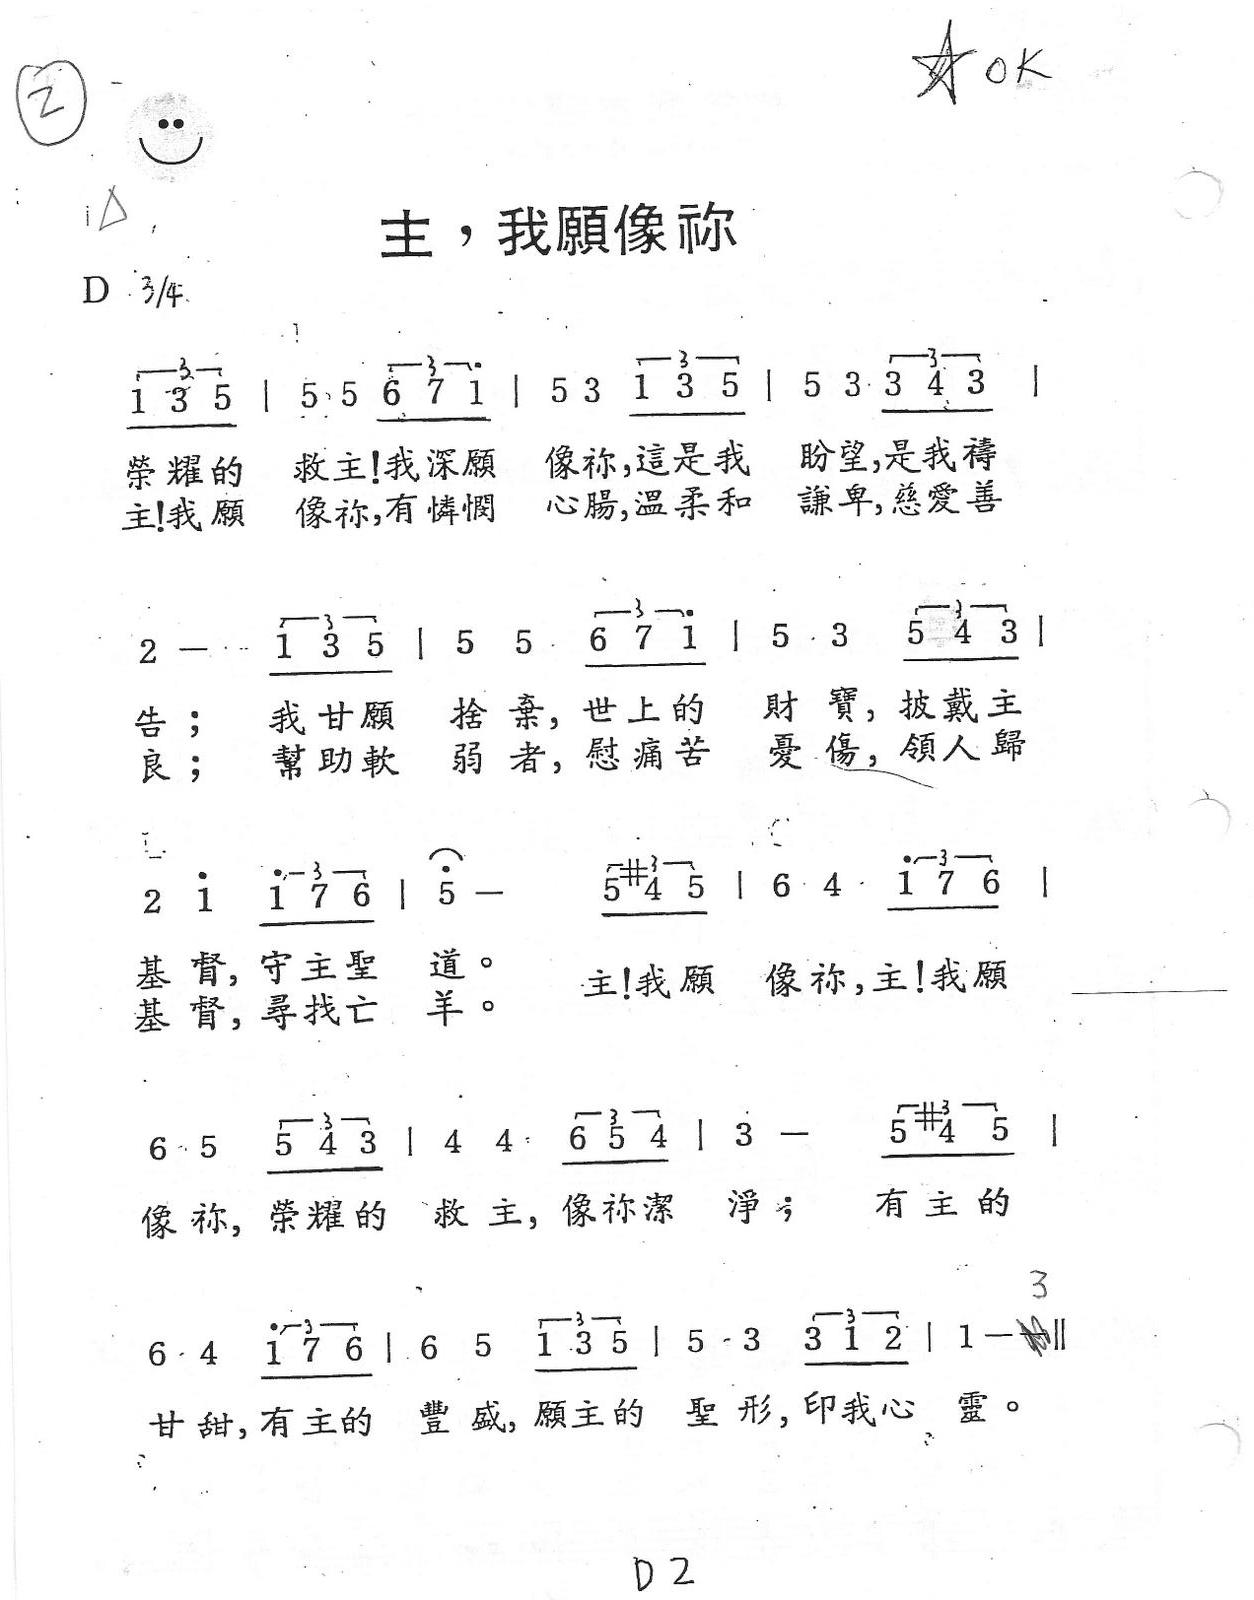 2
☆ OK
i△
主，我願像祢
D 3/4
3 3 3 3
1 3 5 | 5 5 6 7 i | 5 3 1 3 5 | 5 3 3 4 3 |
榮耀的 救主!我深願 像祢,這是我 盼望,是我禱
主!我願 像祢,有憐憫 心腸,溫柔和 謙卑,慈愛善
3 3 3
2 — 1 3 5 | 5 5 6 7 i | 5 3 5 4 3 |
告； 我甘願 捨棄,世上的 財寶,披戴主
良； 幫助軟 弱者,慰痛苦 憂傷,領人歸
3 3 3
2 i i 7 6 | 5 — 5 #4 5 | 6 4 i 7 6 |
基督,守主聖 道。 主!我願 像祢,主!我願
基督,尋找亡 羊。
3 3 3
6 5 5 4 3 | 4 4 6 5 4 | 3 — 5 #4 5 |
像祢,榮耀的 救主,像祢潔 淨； 有主的
3 3 3 3
6 4 i 7 6 | 6 5 1 3 5 | 5 3 3 1 2 | 1 — ||
甘甜,有主的 豐盛,願主的 聖形,印我心 靈。
D2